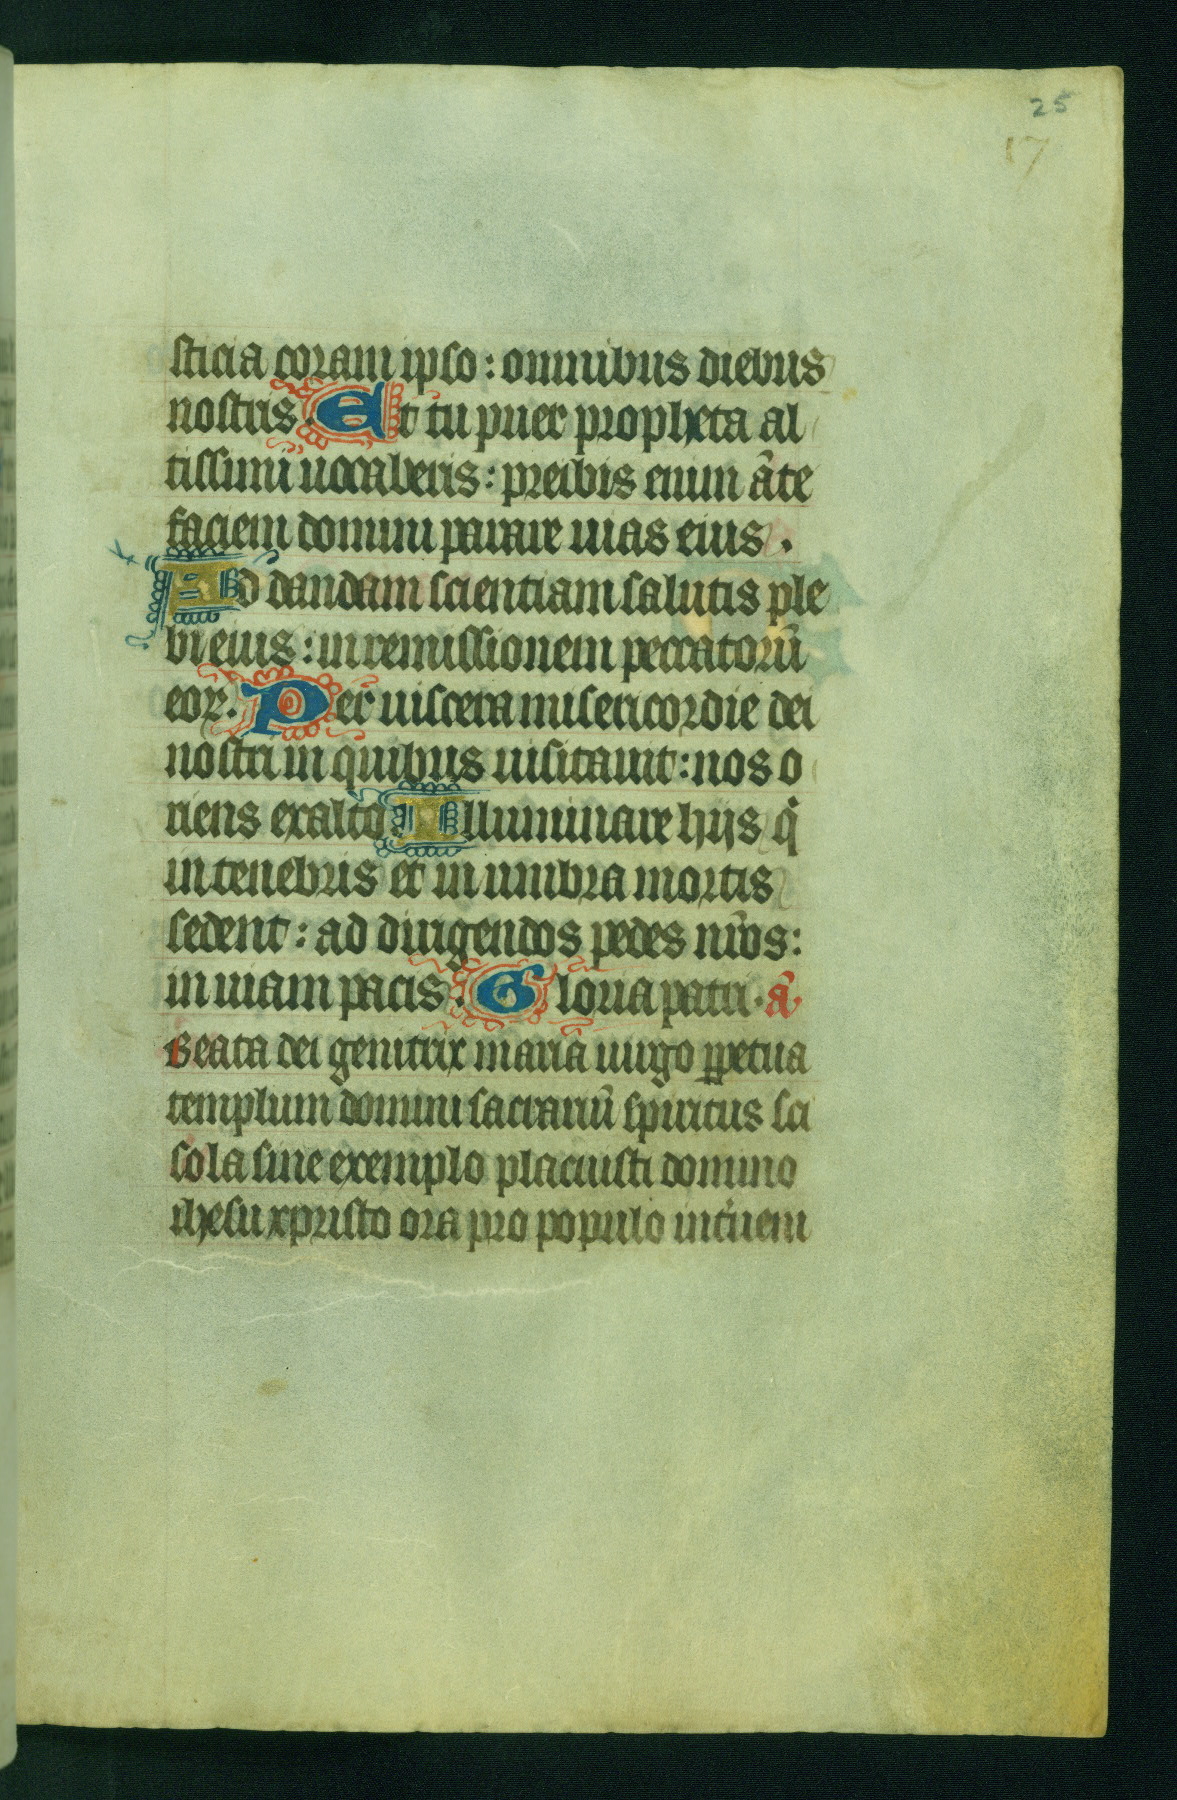 25
17
sticia coram ipso : omnibus diebus
nostris . Et tu puer propheta al
tissimi uocaberis : preibis enim āte
faciem domini parare uias eius .
Ad dandam scientiam salutis ple
bi eius : in remissionem peccatorū
eoꝝ . Per uiscera misericordie dei
nostri in quibus uisitauit : nos o
riens ex alto . Illuminare hijs q̇
in tenebris et in umbra mortis
sedent : ad dirigendos pedes nr̄os :
in uiam pacis . Gloria patri . ā.
Beata dei genitrix mariā uirgo ꝑpetua
templum domini sacrariū spiritus sci
sola sine exemplo placuisti domino
ihesu xpristo ora pro populo int̾ueni